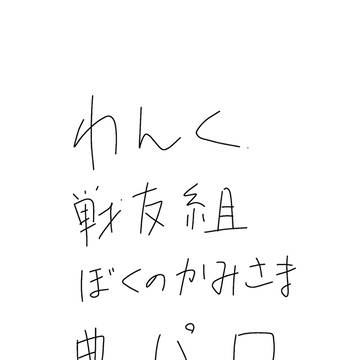 わんく
戦友組
ぼくのかみさま
パロ